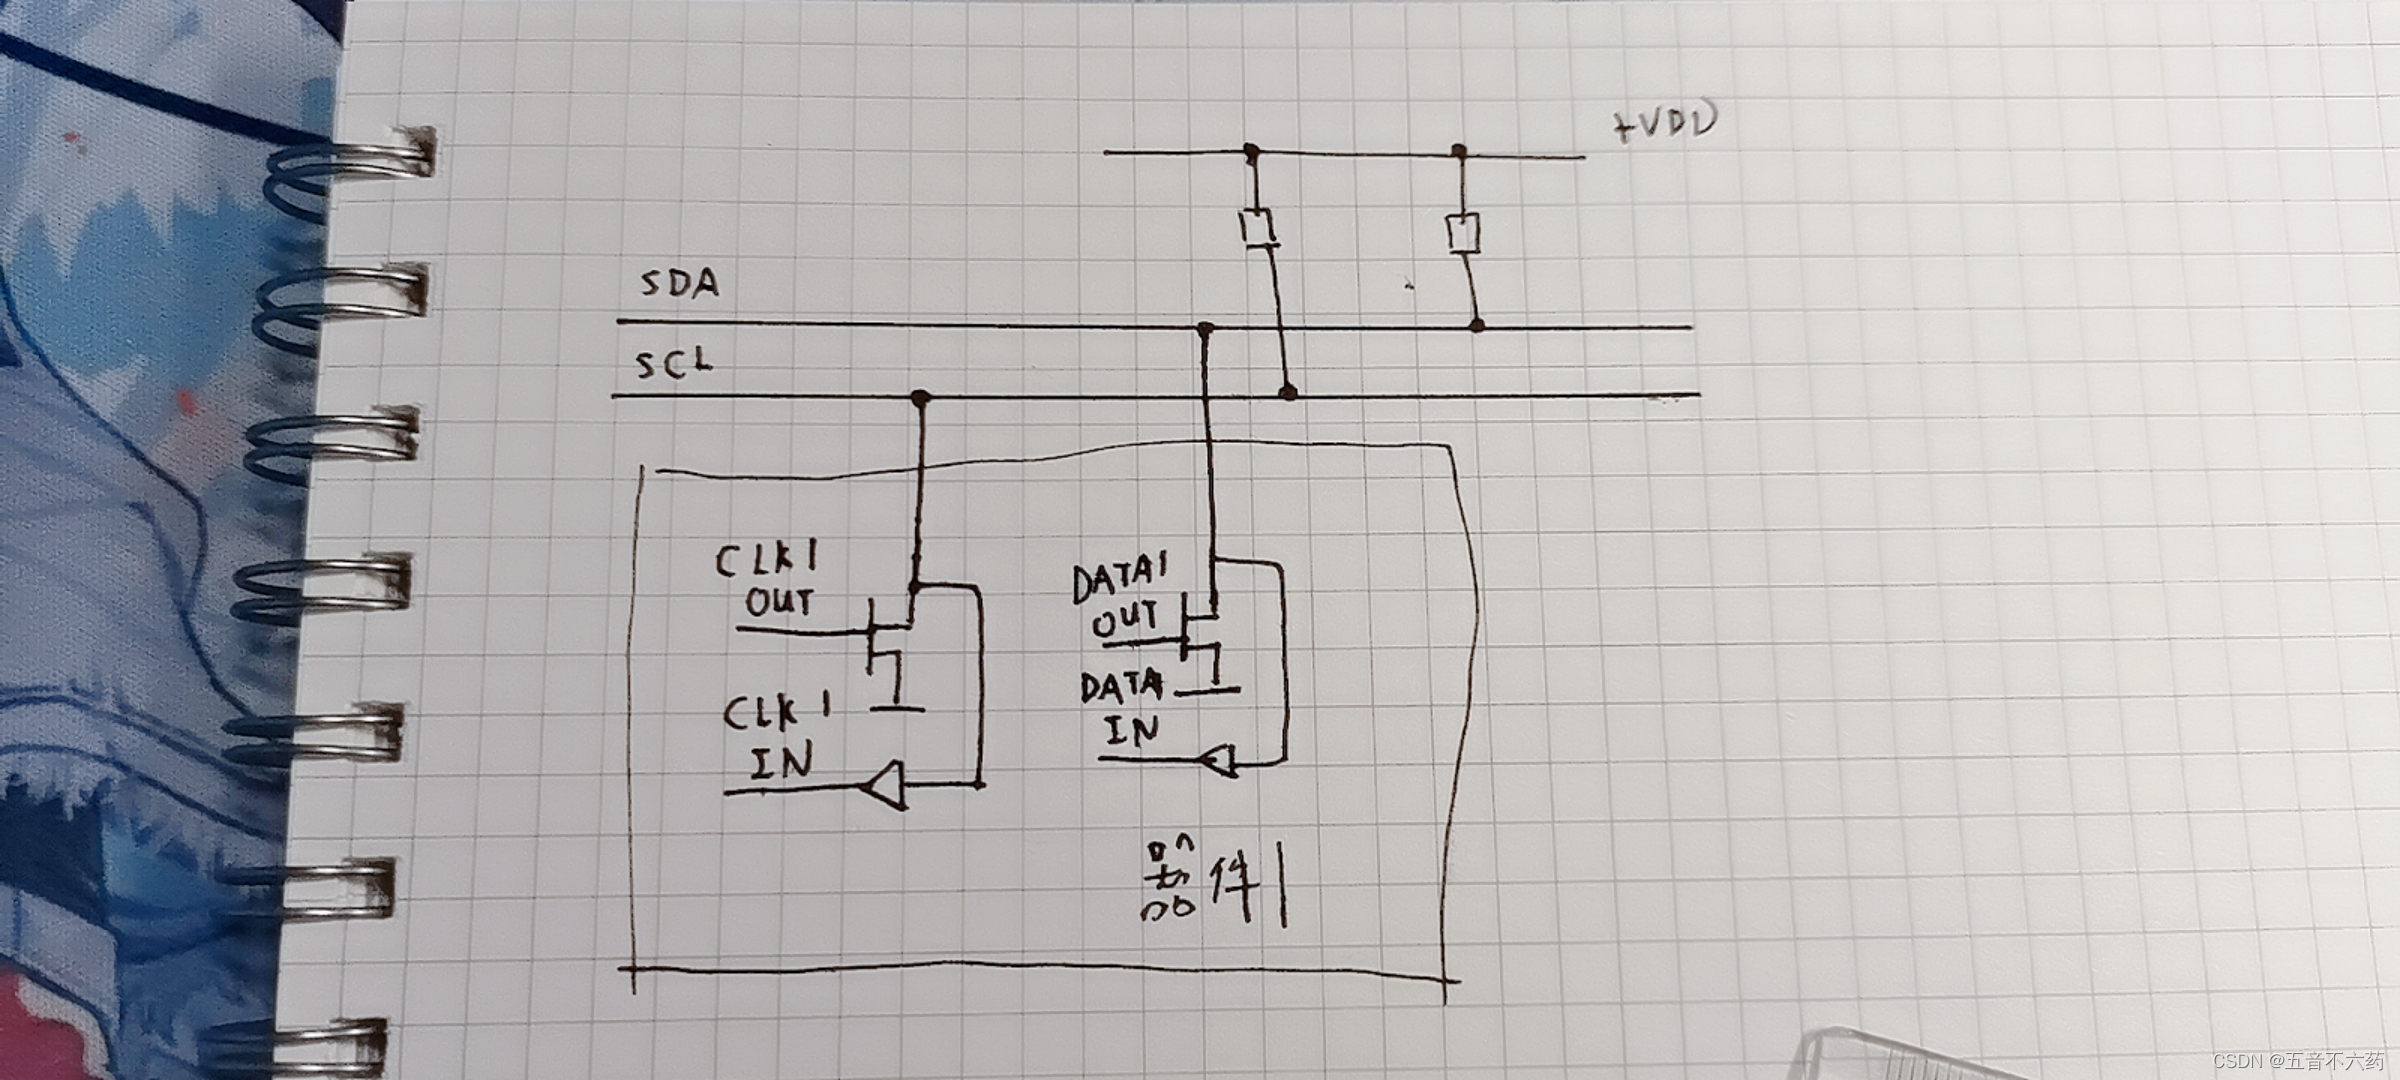 +VDD
SDA
SCL
CLK1
OUT
DATA1
OUT
DATA
IN
CLK1
IN
器件1
CSDN @五音不六药